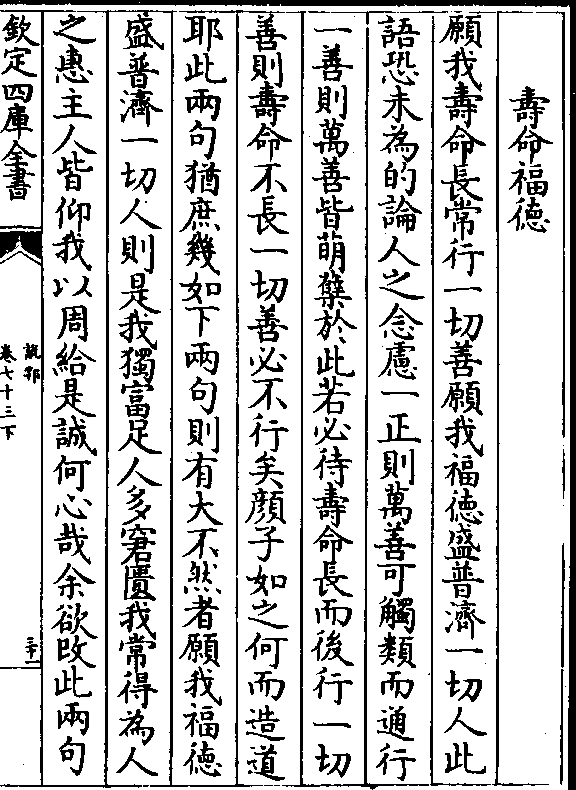 壽命福德
願我壽命長常行一切善願我福德盛普濟一切人此
語恐未為的論人之念慮一正則萬善可觸類而通行
一善則萬善皆萌櫱於此若必待壽命長而後行一切
善則壽命不長一切善必不行矣顔子如之何而造道
耶此兩句猶庶幾如下兩句則有大不然者願我福德
盛普濟一切人則是我獨富足人多窘匱我常得為人
之惠主人皆仰我以周給是誠何心哉余欲改此兩句
欽定四庫全書
說郛
卷七十三下